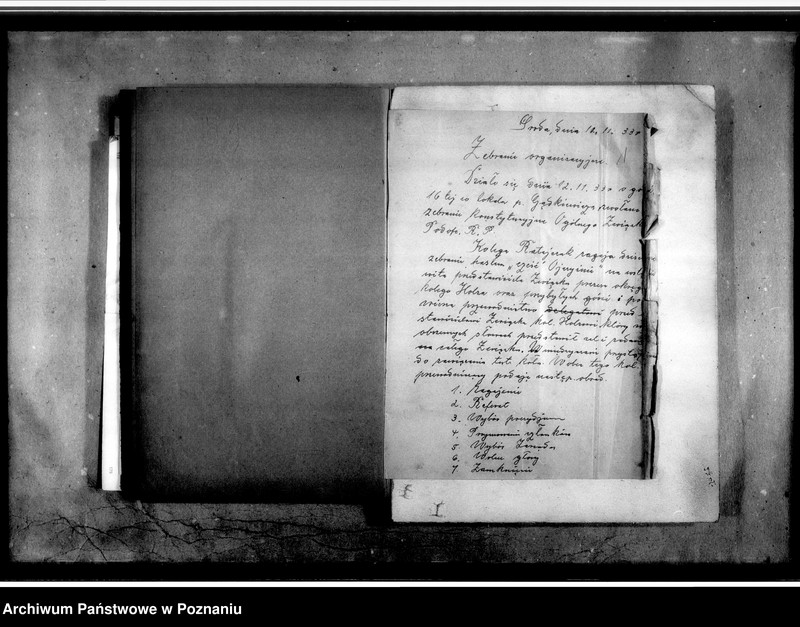 Środa, dnia 12. 11. 33r
Zebranie organizacyjne.
Działo się dnia 12. 11. 33r o god
16 tej w lokalu p. Gąskiewicza zwołano
zebranie konstytucyjne Ogólnego Związek
Podof. R. P.
Kolega Ratajczak zagaja
zebranie hasłem „Cześć Ojczyźnie"
wita przedstawiciela Związku prezes okręg
kolegę Holza oraz przybyłych gości i po
przewodnictwo delegatowi przed
stawicielowi Związku kol. Holzowi który w
obszernych słowach przedstawił cel i zadan
na całego Związku. W międzyczasie
do zawiązania tut. koła. Wobec tego kol.
przewodniczący podaje następ. obrad.
1. Zagajenie
2. Referat
3. Wybór prezydjum
4. Przyjmowanie członków
5. Wybór Zarządu
6. Wolne głosy
7. Zamknięcie
Archiwum Państwowe w Poznaniu